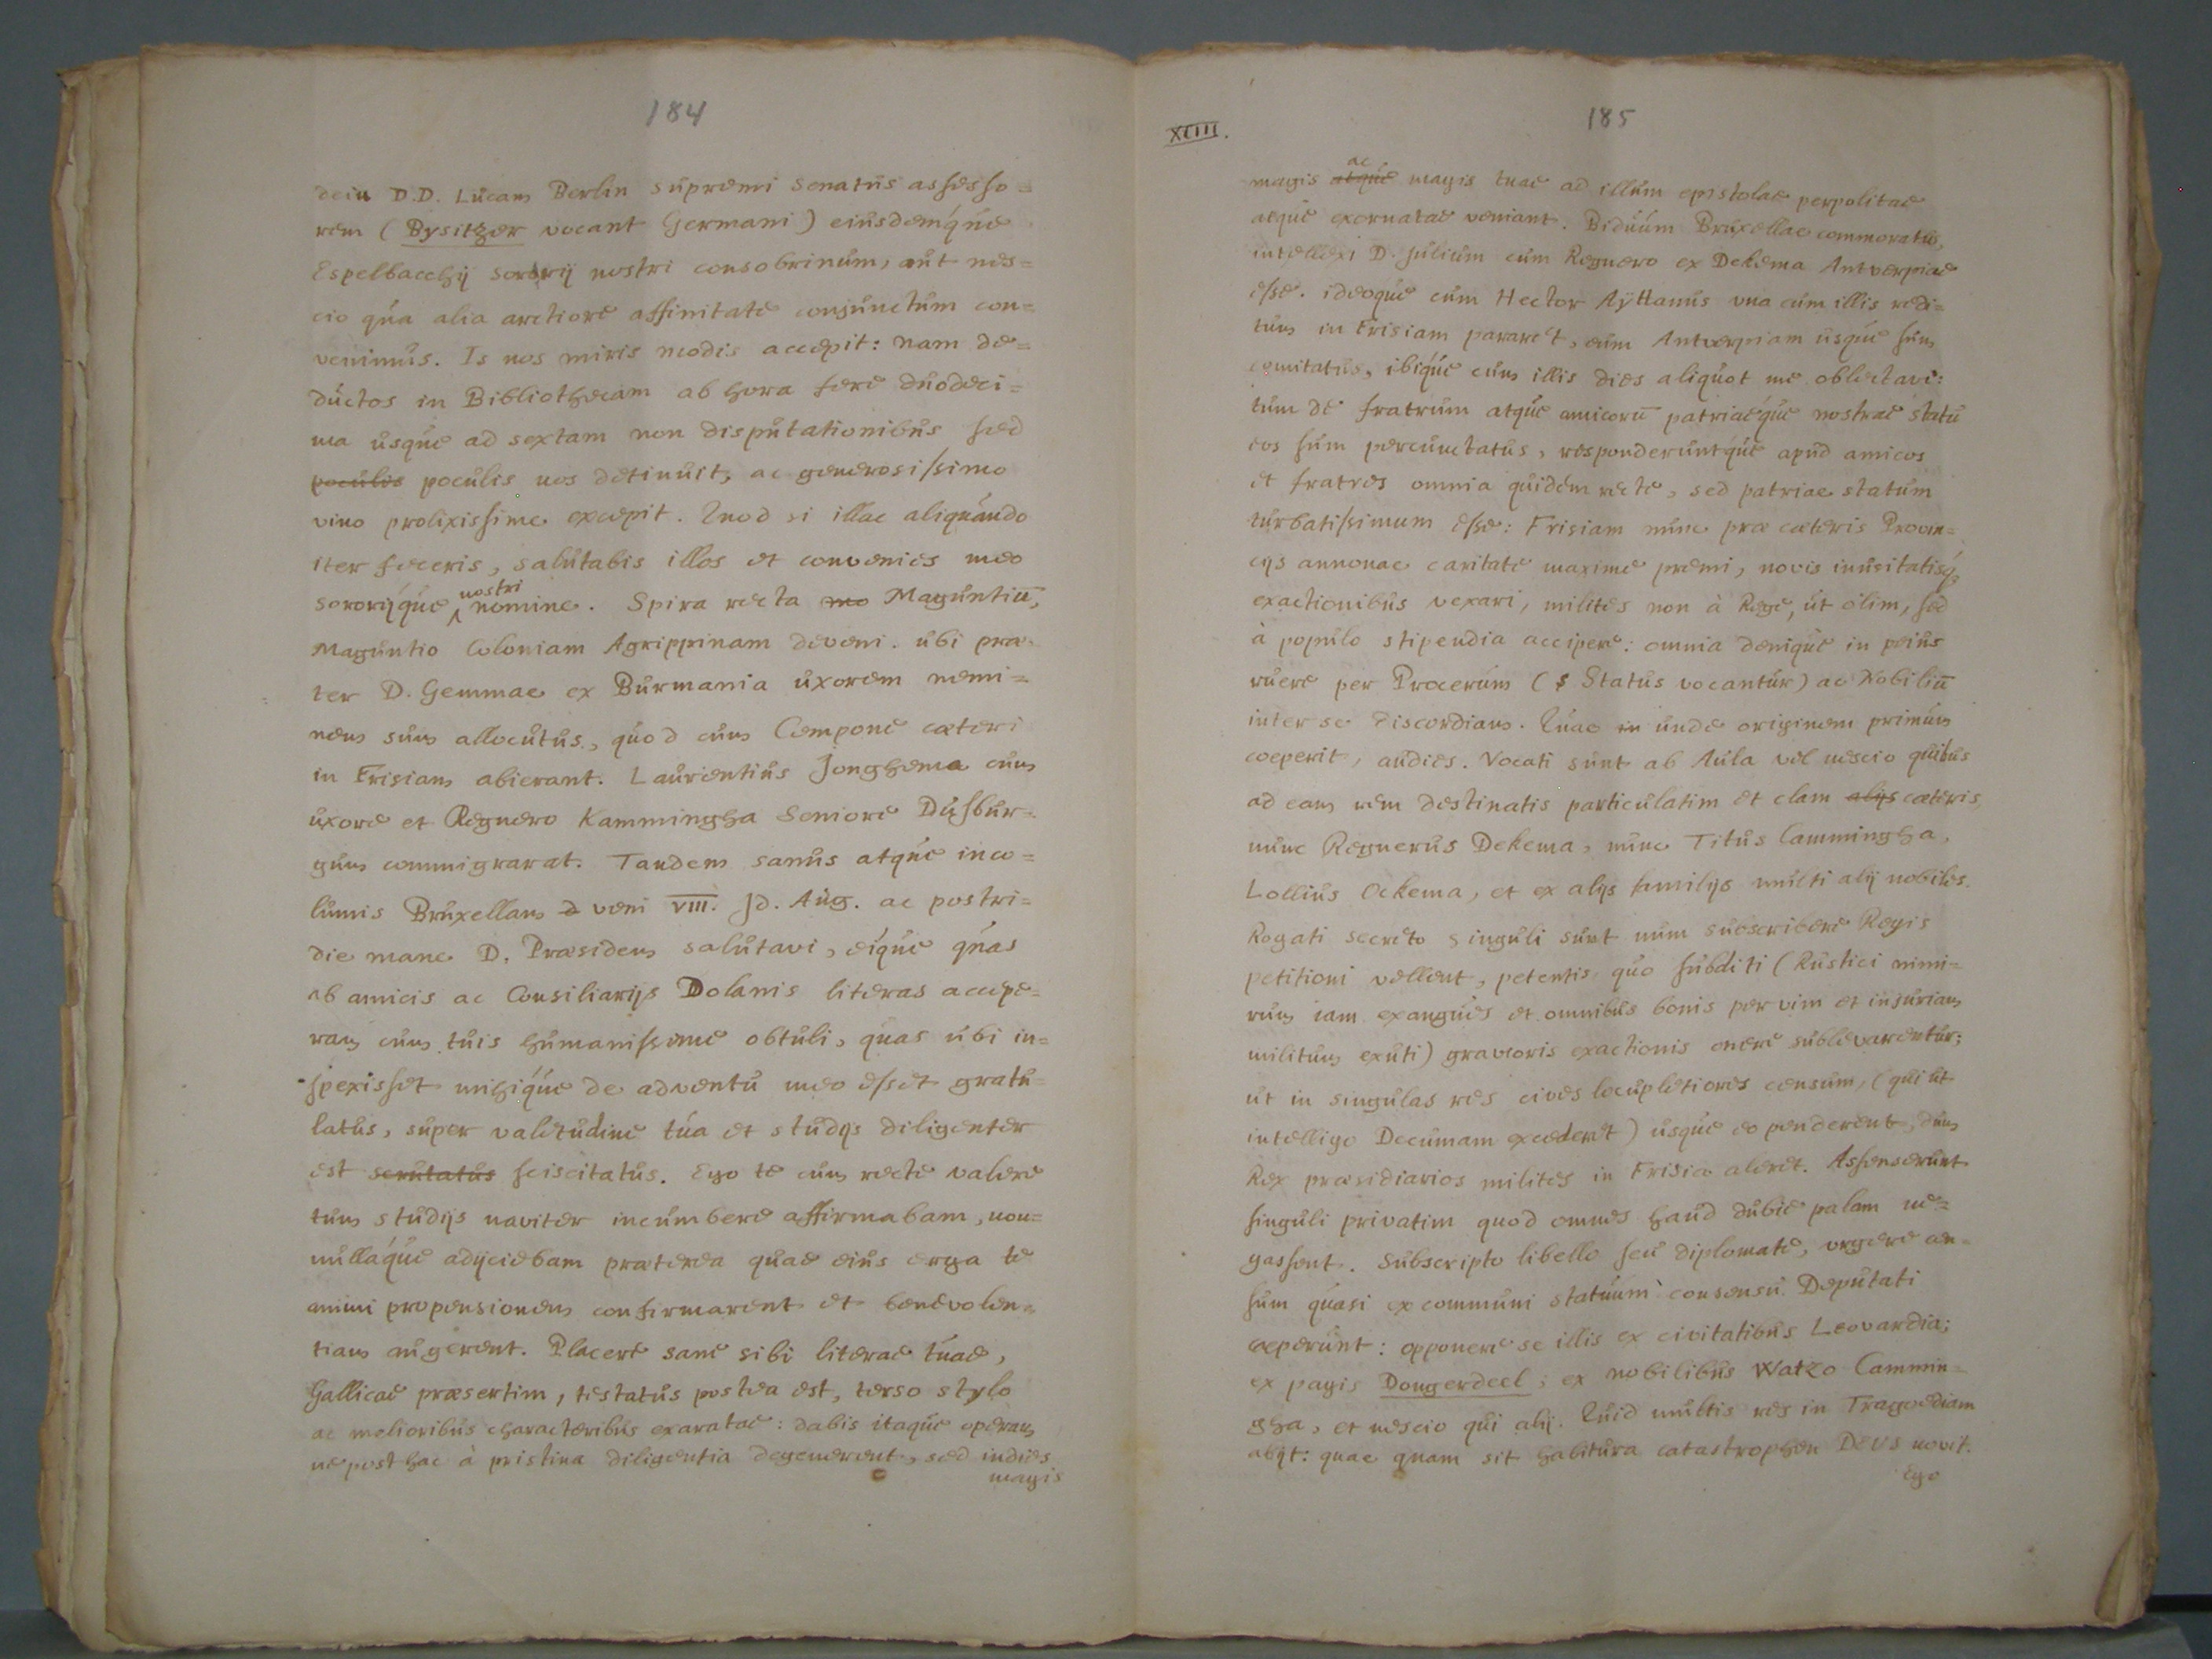 184
dein D.D. Lucam Berlin supremi senatus assesso=
rem (Bysitzer vocant Germani) eiusdemque
Espelbacchij sororij nostri consobrinum, aut nes=
cio qua alia arctiore affinitate conjunctum con=
venimus. Is nos miris modis accepit: nam de=
ductos in Bibliothecam ab hora fere duodeci=
ma usque ad sextam non disputationibus sed
poculis poculis nos detinuit, ac generosissimo
vino prolixissime excepit. Quod si illac aliquando
iter feceris, salutabis illos et convenies meo
sororijque nostri nomine. Spira recta mo Maguntiū,
Maguntio Coloniam Agrippinam deveni. ubi præ=
ter D. Gemmae ex Burmania uxorem nemi=
nem sum allocutus, quod cum Compone cæteri
in Frisiam abierant. Laurentius Jonghema cum
uxore et Regnero Kammingha Seniore Dusbur=
gum commigrarat. Tandem sanus atque inco=
lumis Bruxellam d veni VIII. Jd. Aug. ac postri=
die mane D. Præsidem salutavi, eique quas
ab amicis ac Consiliarijs Dolanis literas accepe=
ram cum tuis humanissime obtuli, quas ubi in=
spexisset mihique de adventu meo esset gratu=
latus, super valetudine tua et studijs diligenter
est scrutatus sciscitatus. Ego te cum recte valere
tum studijs naviter incumbere affirmabam, non=
nullaque adijciebam præterea quae eius erga te
animi propensionem confirmarent et benevolen=
tiam augerent. Placere sane sibi literae tuae,
Gallicae præsertim, testatus postea est, terso stylo
ac melioribus characteribus exaratae: dabis itaque operam
ne posthac à pristina diligentia degenerent, sed indies
magis
XCIII.
185
magis atque ac magis tuae ad illum epistolae perpolitae
atque exornatae veniant. Biduum Bruxellae commoratus,
intellexi D. Julium cum Regnero ex Dekema Antverpiae
esse. ideoque cum Hector Aÿttanus una cum illis redi=
tum in Frisiam pararet, eum Antverpiam usque sum
comitatus, ibique cum illis dies aliquot me oblectavi:
tum de fratrum atque amicorū patriaeque nostrae statu
eos sum percunctatus, responderuntque apud amicos
et fratres omnia quidem recte, sed patriae statum
turbatissimum esse: Frisiam nunc præ cæteris Provin=
cijs annonae caritate maxime premi, novis inusitatisq;
exactionibus vexari, milites non à Rege, ut olim, sed
à populo stipendia accipere: omnia denique in peius
ruere per Procerum (s Status vocantur) ac Nobiliū
inter se discordiam. Quae in unde originem primum
coeperit, audies. Vocati sunt ab Aula vel nescio quibus
ad eam rem destinatis particulatim et clam alijs cæteris
nunc Regnerus Dekema, nunc Titus Cammingha,
Lollius Ockema, et ex alijs familijs multi alij nobiles.
Rogati secreto singuli sunt num subscribere Regis
petitioni vellent, petentis quo subditi (Rustici nimi=
rum iam exangues et omnibus bonis per vim et injuriam
militum exuti) gravioris exactionis onere sublevarentur;
ut in singulas res cives locupletiores censum, (qui ut
intelligo Decumam excederet) usque eo penderent, dum
Rex præsidiarios milites in Frisia aleret. Assenserunt
singuli privatim quod omnes haud dubie palam ne=
gassent. Subscripto libello seu diplomate, urgere an=
sum quasi ex communi statuum consensu Deputati
cæperunt: opponere se illis ex civitatibus Leovardia;
ex pagis Dongerdeel; ex nobilibus Watzo Cammin=
gha, et nescio qui alij. Quid multis res in Tragoediam
abijt: quae quam sit habitura catastrophen DEUS novit.
Ego